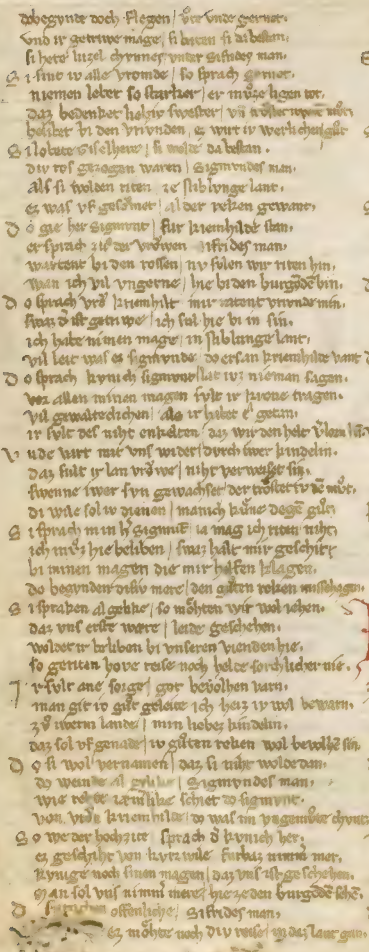 do begynde doch flegen / v̊te vnde gernot.
vnd ir getriwe mage / si baten si da bestan.
si hete luzel chvnnes / vnter sifrides man.
Si sint iv alle vromde / so sprach gernot.
niemen lebet so starker / er mvze ligen tot.
daz bedenket swester / vn̄ trostet mvt.
belibet bi den vrivnden / ez wirt iv werlichen gvt
Si lobete Giselhere / si wolde da bestan.
div ros gezogen waren / Sigmvndes man.
als si wolden riten / ze Niblvnge lant.
ez was vf / al der reken gewant.
Do gie her Sigmvnt / fvr kriemhilde stan.
er sprach zv̊ der vrowen / sifrides man.
wartent bi den rossen / nv svlen wir riten hin.
wan ich vil vngerne / hie bi den bvrgōdē bin.
Do sprach vrō kriemhilt / mir ratent vrivnde min.
swaz d̓ ist getriwe / ich sul hie bi in sin.
ich habe niemen mage / in Niblvnge lant.
vil leit was ez Sigmvnde / do er an kriemhilte vant
Do sprach kvnich Sigmvnt / lat iv nieman sagen.
vor allen minen magen / svlt ir krone tragen.
vil gewaltechlichen / als ir habet ē getan.
ir svlt des niht enkelten / daz wir den helt v̓lorn hā.
Vnde vart mit vns wider / dvrch iwer kindelin.
daz svlt ir lan vrowe / niht verweiset sin.
swenne iwer svn gewahset / der trostet iv dē mvt.
di wile sol iv dienen / manich kv̊ne degē gvt
Si sprach min h̓ Sigmvnt / ia mag ich riten niht.
ich mvz hie beliben / swaz halt mir geschiht
bi minen magen die mir helfen klagen.
do begvnden disiv mere / den gvten reken missehagen.
Si sprachen al geliche / so mohten wir wol iehen.
daz vns erste were / leide geschehen.
woldet ir beliben bi vnseren vienden hie.
so geriten hove reise noch helde sorchlicher nie.
Ir svlt ane sorge / got bevolhen varn.
man git iv gvt geleite ich heiz iv wol bewarn.
zv̊ iwerm lande / min liebez kindelin.
daz sol vf genade / iv gvten reken wol bevolhē sin.
Do si wol vernamen / daz si niht wolde dan.
do weinde al geliche / Sigmvndes man.
wie rehte iæmerliche schiet do Sigmvnt.
von vrōn kriemhilde / do was im vngemv̊te chvnt
So we der hochzite sprach d̓ kvnich her.
ez geschiht von kvrzwile fvrbaz nimmer mer.
kvnige noch sinen magen / daz vns ist geschehen.
man sol vns nimm̓ mere / hie ze den bvrgōdē sehē.
Do sprachen offenliche / Sifrides man.
ez mohte noch div reise / in daz lant gan.